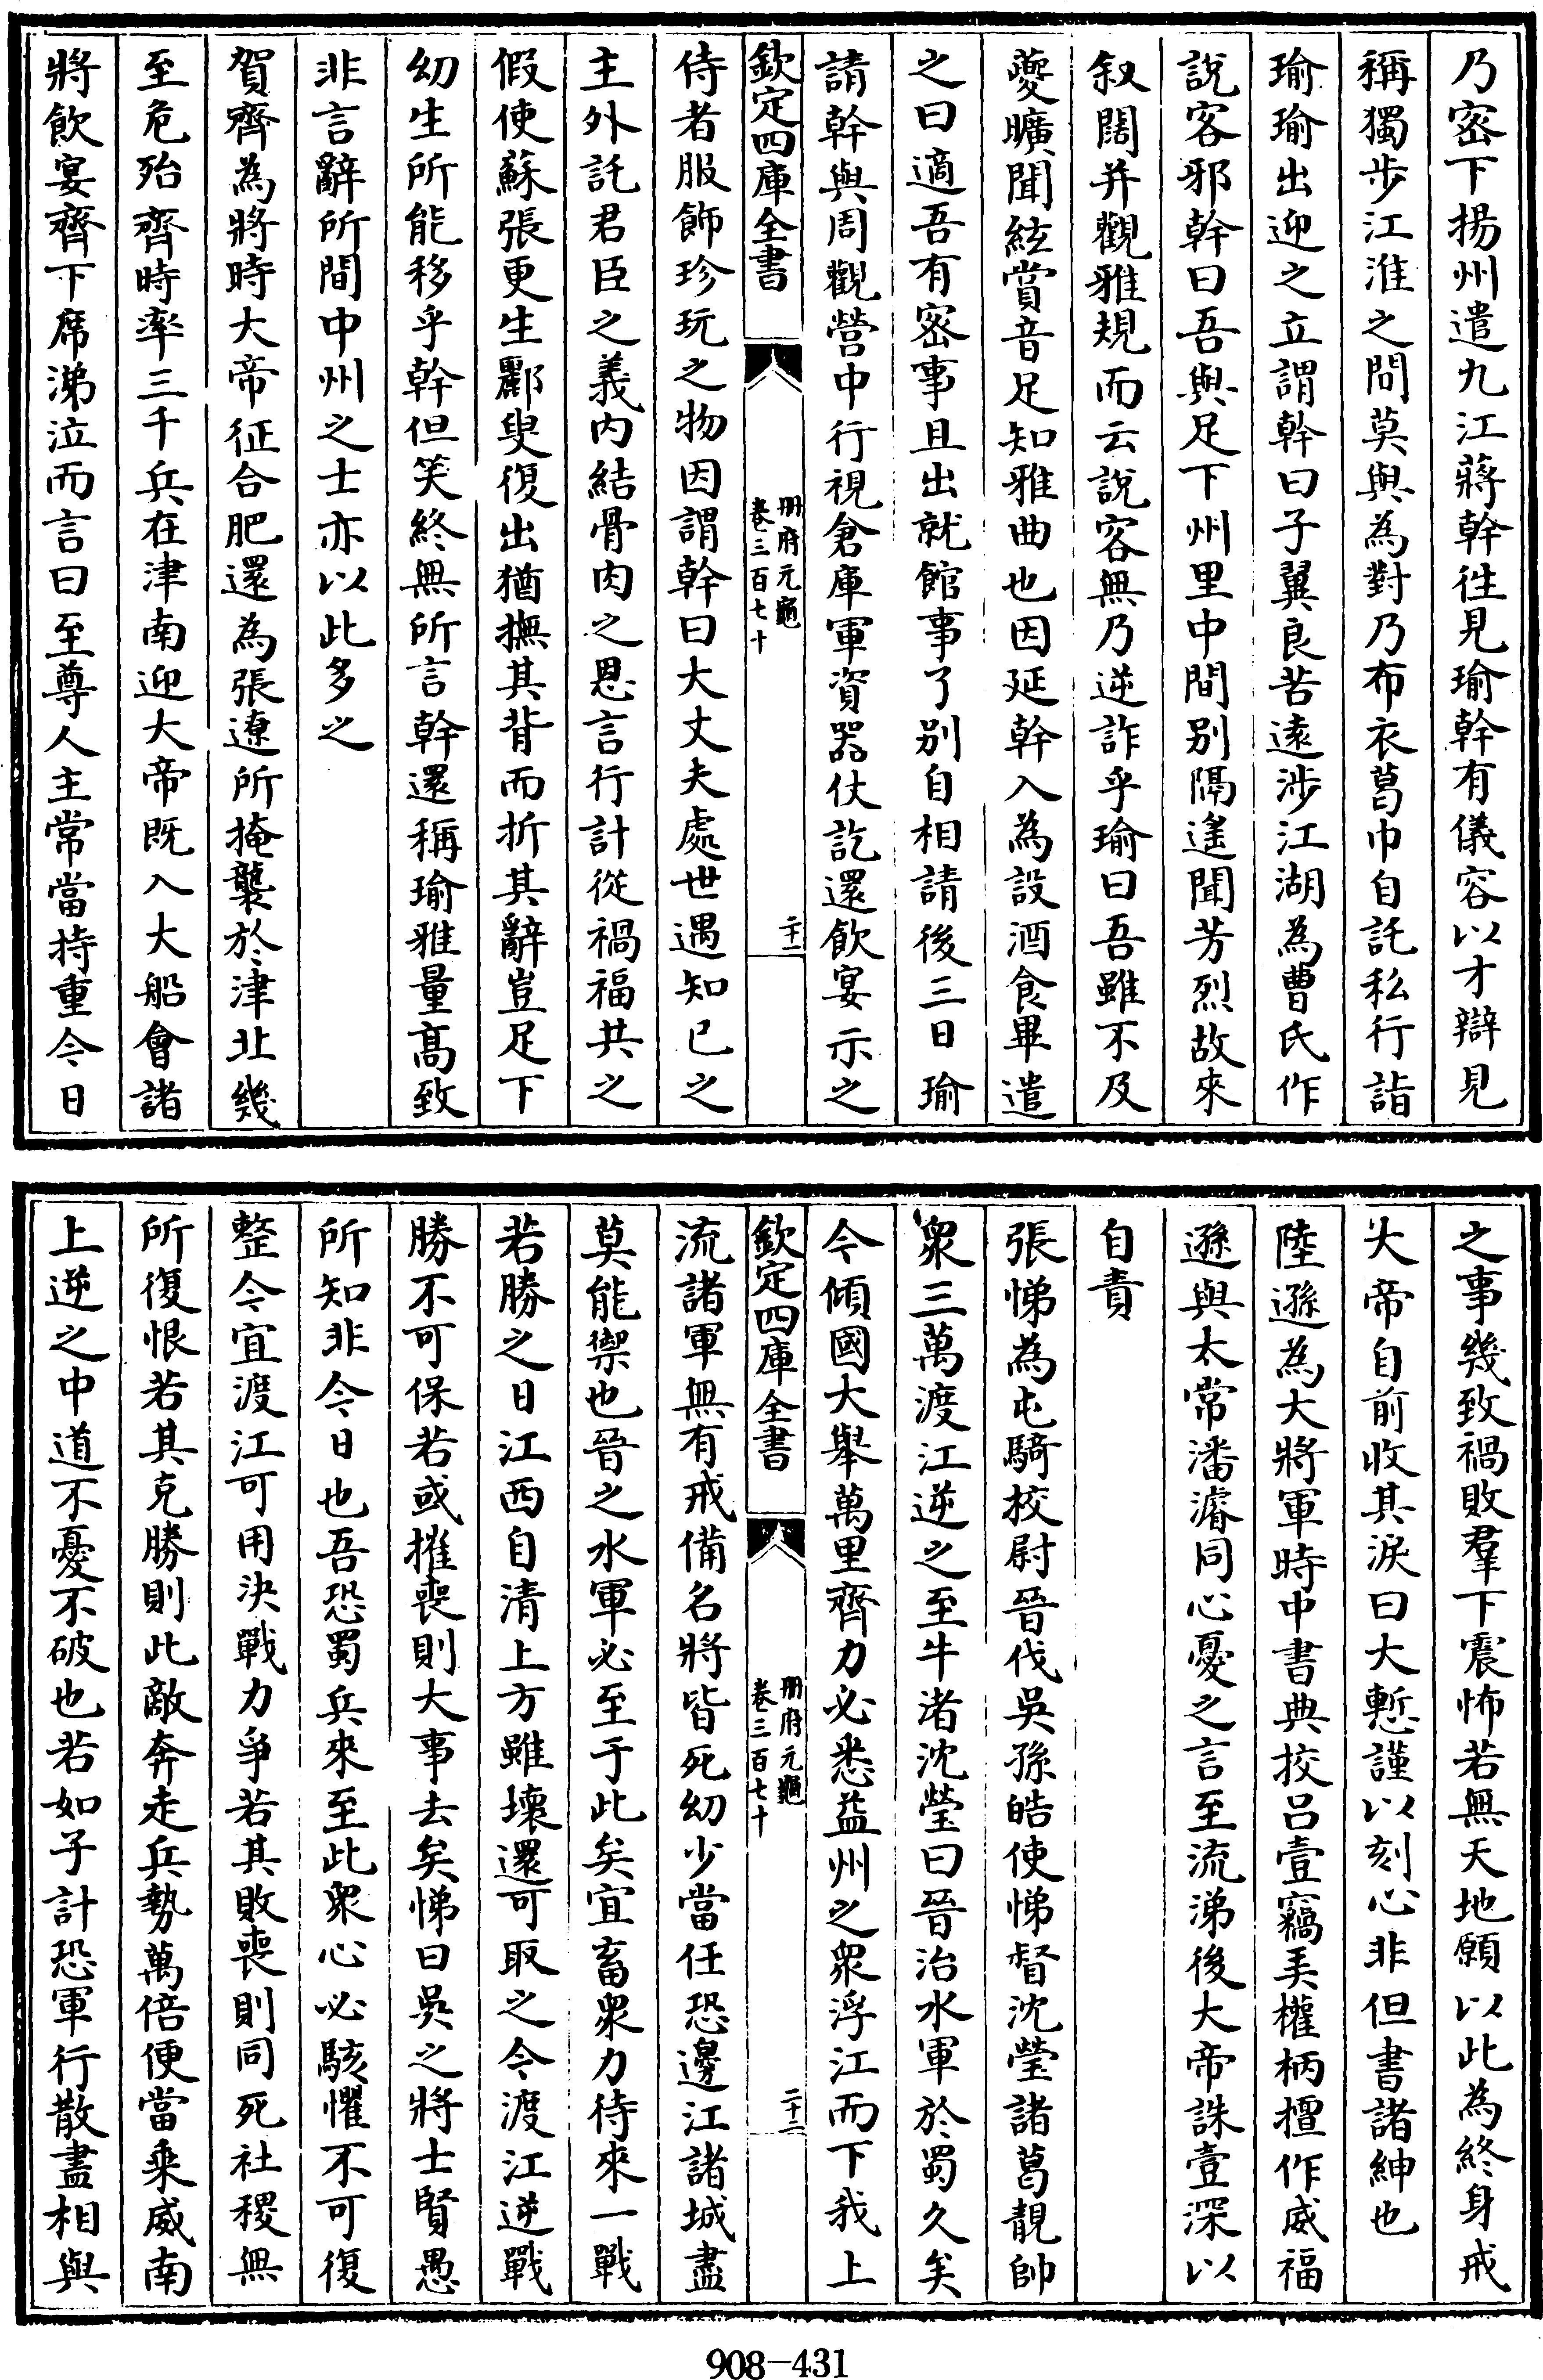 乃密下揚州遣九江蔣幹徃見瑜幹有儀容以才辯見
稱獨步江淮之間莫與為對乃布衣葛巾自託私行詣
瑜瑜出迎之立謂幹曰子翼良苦遠涉江湖為曹氏作
說客邪幹曰吾與足下州里中間别隔遙聞芳烈故來
叙闊并觀雅規而云說客無乃逆詐乎瑜曰吾雖不及
夔曠聞絃賞音足知雅曲也因延幹入為設酒食畢遣
之曰適吾有密事且出就館事了别自相請後三日瑜
請幹與周觀營中行視倉庫軍資器仗訖還飲宴示之
欽定四庫全書
册府元龜
卷三百七十
二十一
侍者服飾珍玩之物因謂幹曰大丈夫處世遇知已之
主外託君臣之義内結骨肉之恩言行計從禍福共之
假使蘇張更生酈叟復出猶撫其背而折其辭豈足下
幼生所能移乎幹但笑終無所言幹還稱瑜雅量高致
非言辭所間中州之士亦以此多之
賀齊為將時大帝征合肥還為張遼所掩襲於津北幾
至危殆齊時率三千兵在津南迎大帝既入大船會諸
將飲宴齊下席涕泣而言曰至尊人主常當持重今日
之事幾致禍敗羣下震怖若無天地願以此為終身戒
大帝自前收其淚曰大慙謹以刻心非但書諸紳也
陸遜為大將軍時中書典挍呂壹竊美權柄擅作威福
遜與太常潘濬同心憂之言至流涕後大帝誅壹深以
自責
張悌為屯騎校尉晉伐吳孫皓使悌督沈瑩諸葛靚帥
衆三萬渡江逆之至牛渚沈瑩曰晉治水軍於蜀久矣
今傾國大舉萬里齊力必悉益州之衆浮江而下我上
欽定四庫全書
册府元龜
卷三百七十
二十二
流諸軍無有戒備名將皆死幼少當任恐邊江諸城盡
莫能禦也晉之水軍必至于此矣宜畜衆力待來一戰
若勝之日江西自清上方雖壞還可取之今渡江逆戰
勝不可保若或摧喪則大事去矣悌曰吳之將士賢愚
所知非今日也吾恐蜀兵來至此衆心必駭懼不可復
整今宜渡江可用決戰力爭若其敗喪則同死社稷無
所復恨若其克勝則此敵奔走兵勢萬倍便當乘威南
上逆之中道不憂不破也若如子計恐軍行散盡相與
908-431